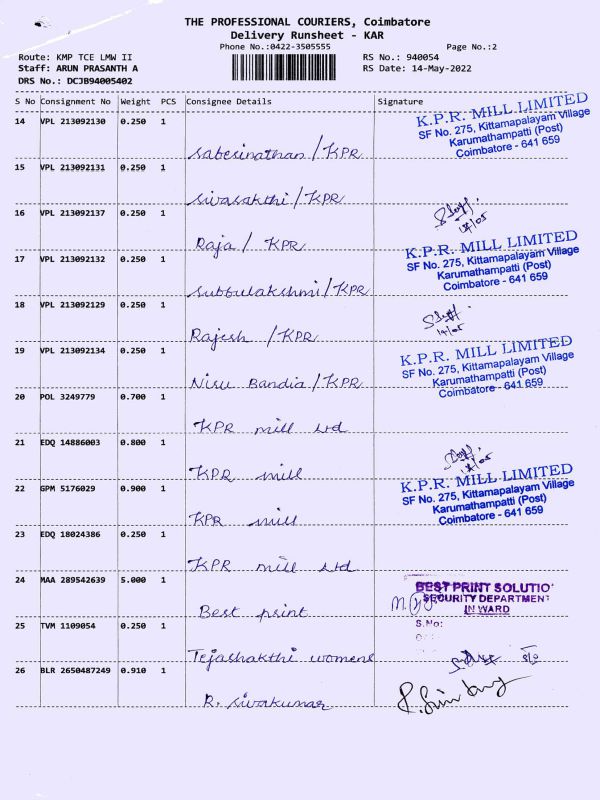 THE PROFESSIONAL COURIERS, Coimbatore
Delivery Runsheet - KAR
Phone No.:0422-3505555
Page No.:2
Route: KMP TCE LMW II
RS No.: 940054
Staff: ARUN PRASANTH A
RS Date: 14-May-2022
DRS No.: DCJB94005402
S No Consignment No Weight PCS Consignee Details Signature
14 VPL 213092130 0.250 1
Sabesinathan / KPR
K.P.R. MILL LIMITED
SF No. 275, Kittamapalayam Village
Karumathampatti (Post)
Coimbatore - 641 659
15 VPL 213092131 0.250 1
Sivasakthi / KPR
16 VPL 213092137 0.250 1
Raja / KPR
Staff.
14/05
17 VPL 213092132 0.250 1
Subbulakshmi / KPR
K.P.R. MILL LIMITED
SF No. 275, Kittamapalayam Village
Karumathampatti (Post)
Coimbatore - 641 659
18 VPL 213092129 0.250 1
Rajesh / KPR
Staff
14/05
19 VPL 213092134 0.250 1
Nisu Bandia / KPR
K.P.R. MILL LIMITED
SF No. 275, Kittamapalayam Village
Karumathampatti (Post)
Coimbatore - 641 659
20 POL 3249779 0.700 1
KPR mill Ltd
21 EDQ 14886003 0.800 1
KPR mill
Staff.
14/05
22 GPM 5176029 0.900 1
KPR mill
K.P.R. MILL LIMITED
SF No. 275, Kittamapalayam Village
Karumathampatti (Post)
Coimbatore - 641 659
23 EDQ 18024386 0.250 1
KPR mill Ltd
24 MAA 289542639 5.000 1
Best print
BEST PRINT SOLUTIO
SECURITY DEPARTMENT
IN WARD
S.No:
25 TVM 1109054 0.250 1
Tejashakthi womens
26 BLR 2650487249 0.910 1
R. Sivakumar